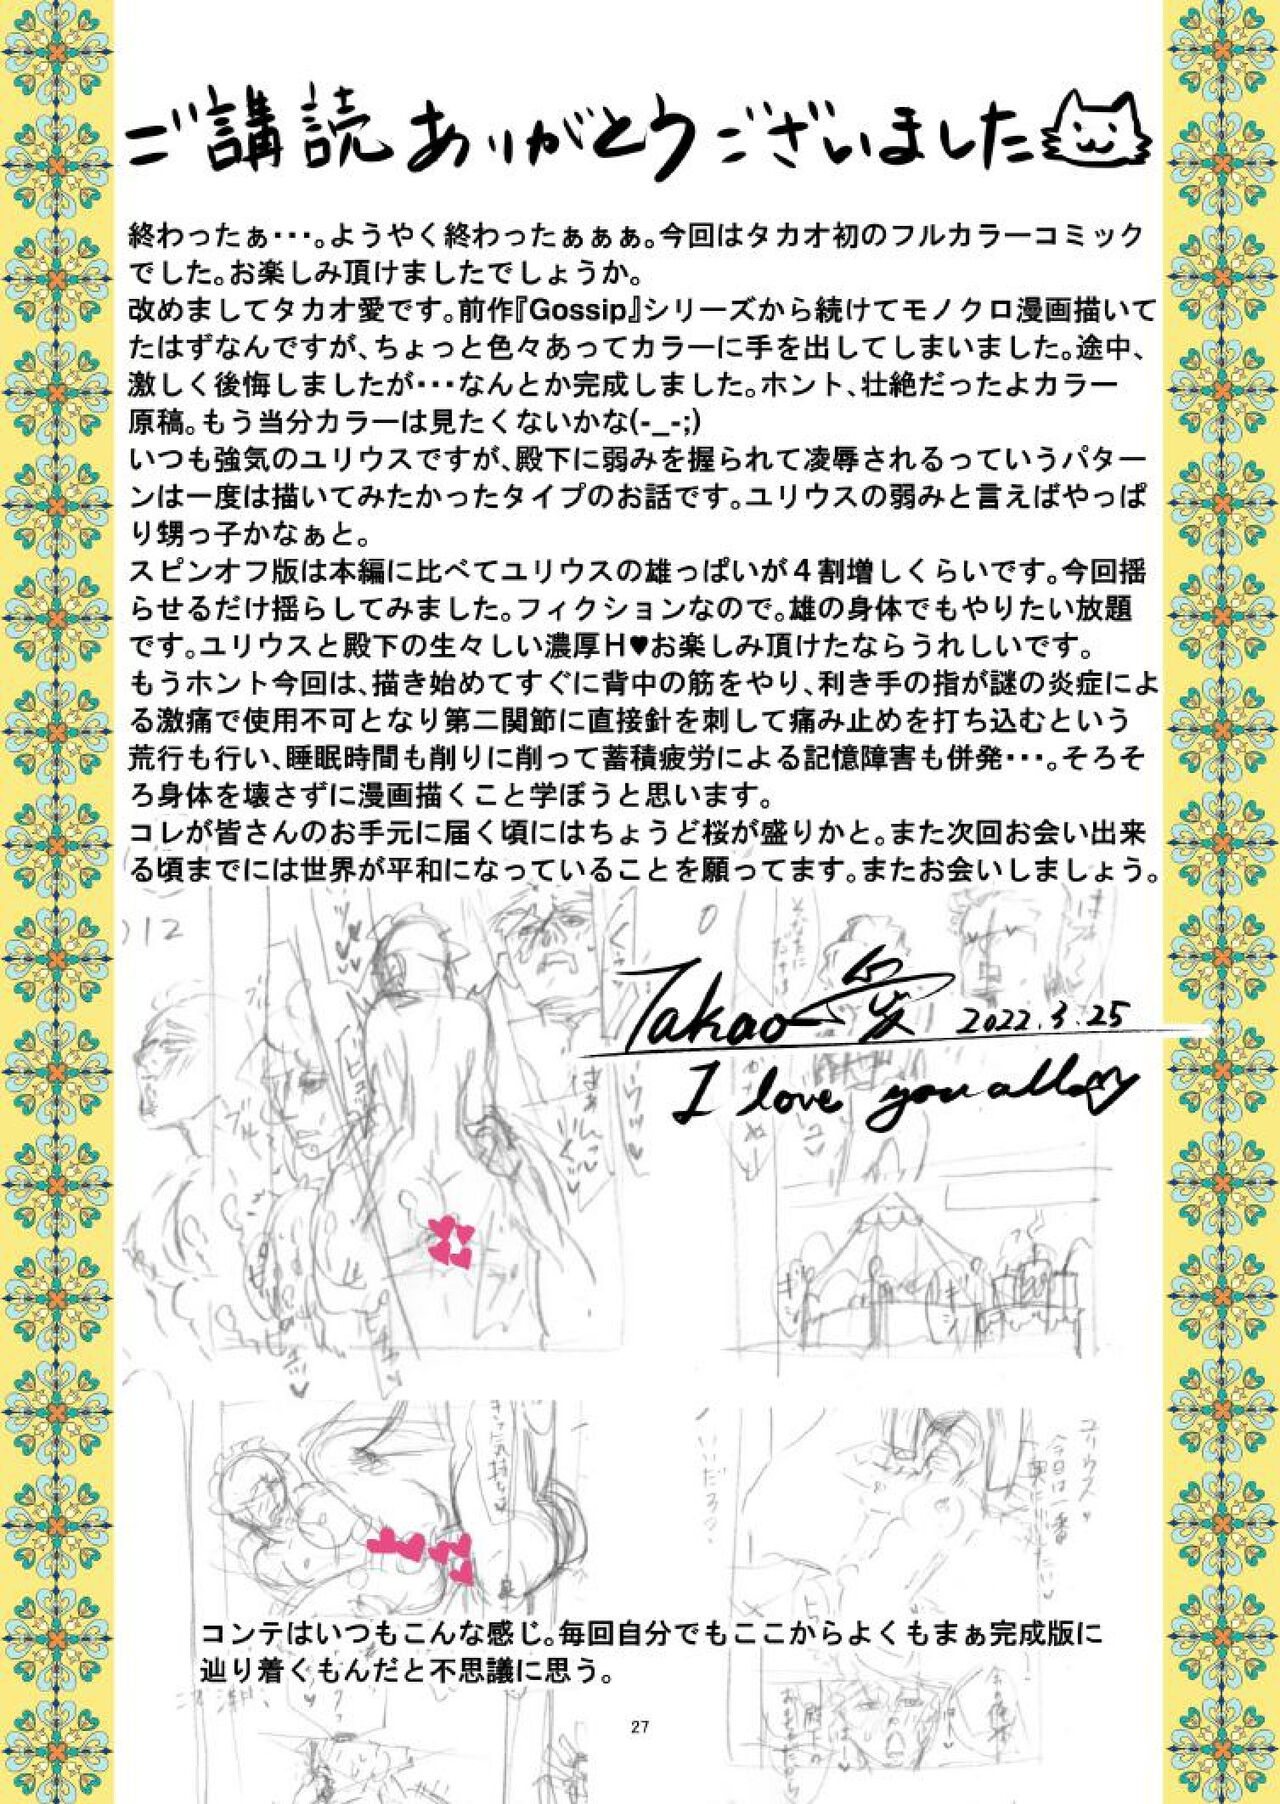 ご講読ありがとうございました
終わったぁ・・・。ようやく終わったぁぁぁ。今回はタカオ初のフルカラーコミック
でした。お楽しみ頂けましたでしょうか。
改めましてタカオ愛です。前作『Gossip』シリーズから続けてモノクロ漫画描いて
たはずなんですが、ちょっと色々あってカラーに手を出してしまいました。途中、
激しく後悔しましたが・・・なんとか完成しました。ホント、壮絶だったよカラー
原稿。もう当分カラーは見たくないかな(-_-;)
いつも強気のユリウスですが、殿下に弱みを握られて凌辱されるっていうパター
ンは一度は描いてみたかったタイプのお話です。ユリウスの弱みと言えばやっぱ
り甥っ子かなぁと。
スピンオフ版は本編に比べてユリウスの雄っぱいが４割増しくらいです。今回揺
らせるだけ揺らしてみました。フィクションなので。雄の身体でもやりたい放題
です。ユリウスと殿下の生々しい濃厚H♥お楽しみ頂けたならうれしいです。
もうホント今回は、描き始めてすぐに背中の筋をやり、利き手の指が謎の炎症によ
る激痛で使用不可となり第二関節に直接針を刺して痛み止めを打ち込むという
荒行も行い、睡眠時間も削りに削って蓄積疲労による記憶障害も併発・・・。そろそ
ろ身体を壊さずに漫画描くこと学ぼうと思います。
コレが皆さんのお手元に届く頃にはちょうど桜が盛りかと。また次回お会い出来
る頃までには世界が平和になっていることを願ってます。またお会いしましょう。
Takao愛 2022.3.25
I love you all
コンテはいつもこんな感じ。毎回自分でもここからよくもまぁ完成版に
辿り着くもんだと不思議に思う。
27